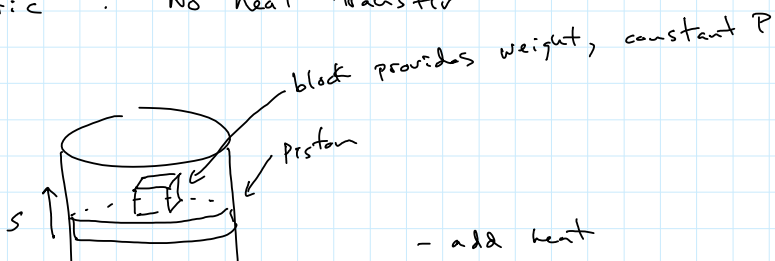 : No heat
block provides weight, constant P
piston
S
- add heat